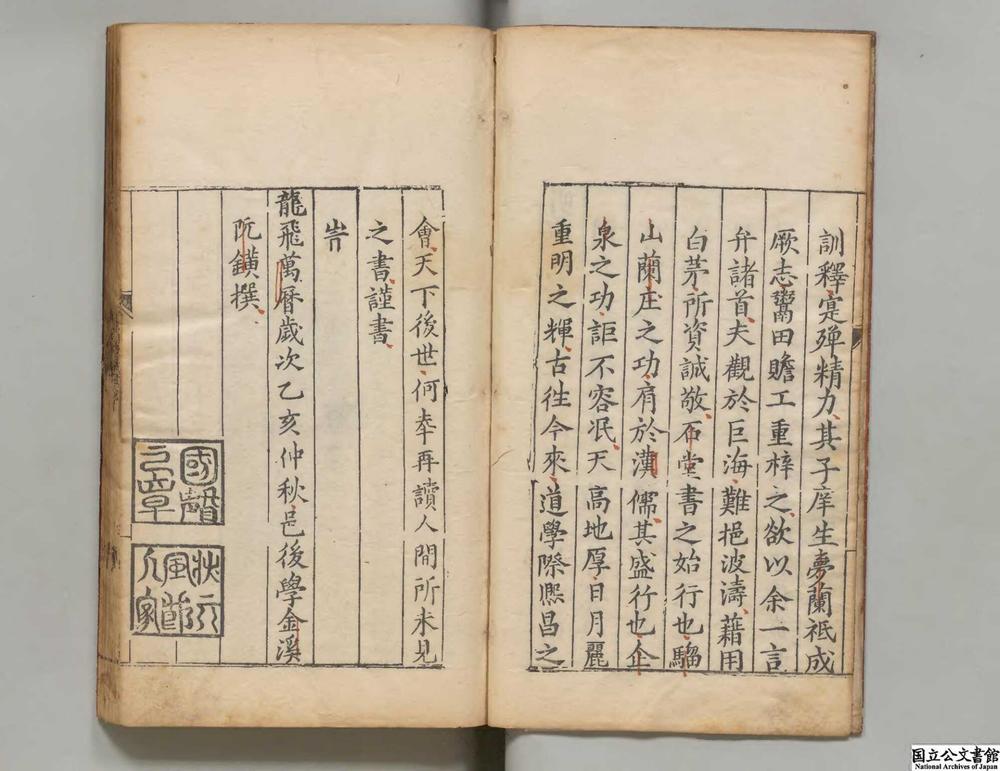 訓釋寔殫精力其子庠生夢蘭祗成
厥志鬻田贍工重梓之欲以余一言
弁諸首夫觀於巨海難挹波濤藉用
白茅所資誠敬石堂書之始行也騮
山蘭庄之功有於漢儒其盛行也企
泉之功詎不容泯天高地厚日月麗
重明之輝古往今來道學際熈昌之
會天下後世何幸再讀人間所未見
之書謹書
旹
龍飛萬曆歲次乙亥仲秋邑後學金溪
阮鐄撰
國聲之章
狀元風節人家
国立公文書館
National Archives of Japan